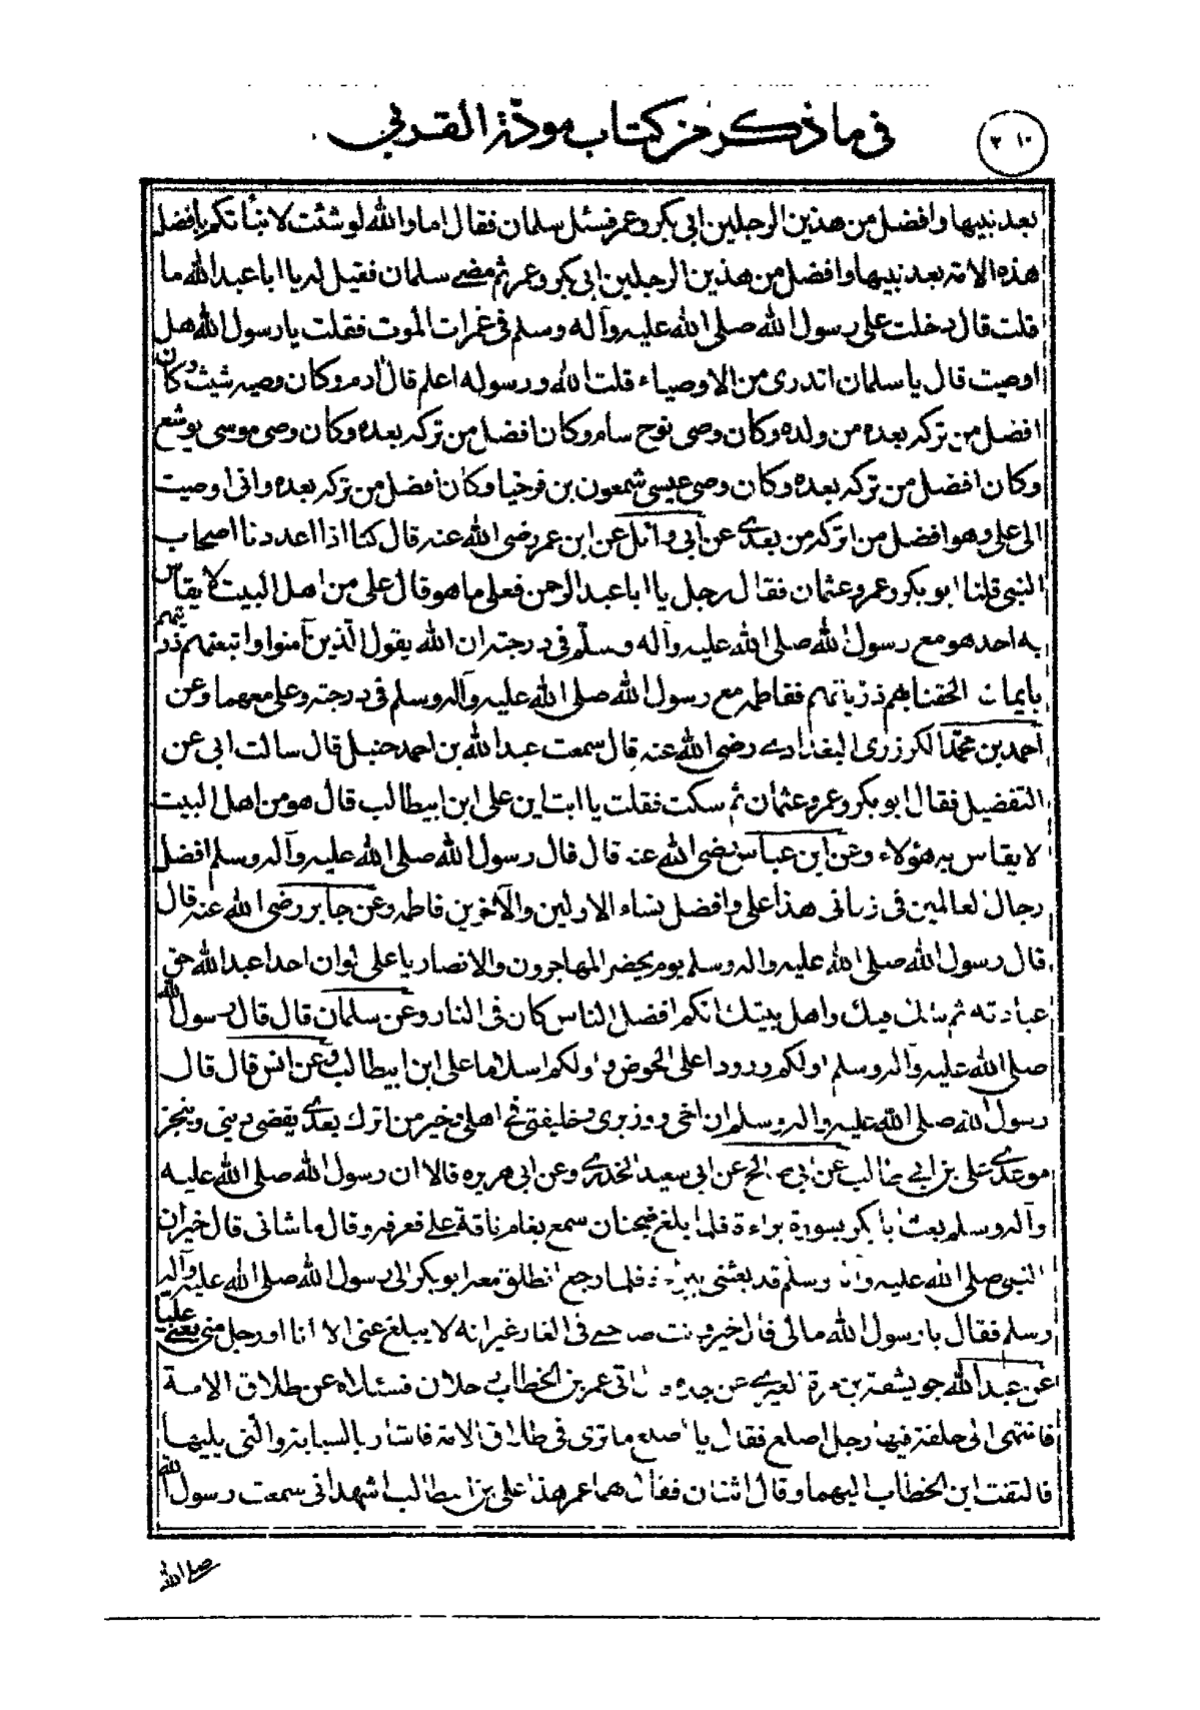 في ما ذكر من كتاب مودّة القربى
٣١٠
بعد نبيها وافضل من هذين الرجلين ابي بكر وعمر فسئل سلمان فقال اما والله لو شئت لانبأتكم بافضل
هذه الامة بعد نبيها وافضل من هذين الرجلين ابي بكر وعمر ثم مضى سلمان فقيل له يا ابا عبد الله ما
قلت قال دخلت على رسول الله صلى الله عليه وآله وسلم في غمرات الموت فقلت يا رسول الله هل
اوصيت قال يا سلمان اتدرى من الاوصياء قلت الله ورسوله اعلم قال آدم وكان وصيه شيث وكان
افضل من تركه بعده من ولده وكان وصى نوح سام وكان افضل من تركه بعده وكان وصى موسى يوشع
وكان افضل من تركه بعده وكان وصى عيسى شمعون بن فرخيا وكان افضل من تركه بعده وانى اوصيت
الى على وهو افضل من اتركه من بعدى عن ابى وائل عن ابن عمر رضى الله عنه قال كنا اذا اعددنا اصحاب
النبى قلنا ابو بكر وعمر وعثمان فقال رجل يا ابا عبد الرحمن فعلى ما هو قال على من اهل البيت لا يقاس
به احد هو مع رسول الله صلى الله عليه وآله وسلّم فى درجته ان الله يقول الّذين آمنوا واتبعتهم ذريتهم
بايمان الحقنا بهم ذرياتهم ففاطمه مع رسول الله صلى الله عليه وآله وسلم فى درجته وعلى معهما وعن
احمد بن محمّد الكرزرى البغدادى رضى الله عنه قال سمعت عبد الله بن احمد حنبل قال سالت ابى عن
التفضيل فقال ابو بكر وعمر وعثمان ثم سكت فقلت يا ابت اين على ابن ابيطالب قال هو من اهل البيت
لا يقاس به هؤلاء وعن ابن عباس رضى الله عنه قال قال رسول الله صلى الله عليه وآله وسلم افضل
رجال العالمين فى زمانى هذا على وافضل نساء الاولين والآخرين فاطمه وعن جابر رضى الله عنه قال
قال رسول الله صلى الله عليه واله وسلم يوم يحضر المهاجرون والانصار يا على لو ان احدا عبد الله حق
عبادته ثم شك فيك واهل بيتك انكم افضل الناس كان فى النار وعن سلمان قال قال رسول الله
صلى الله عليه وآله وسلم اولكم ورودا على الحوض واولكم اسلاما على ابن ابيطالب وعن انس قال قال
رسول الله صلى الله عليه واله وسلم ان اخى ووزيرى وخليفتى فى اهلى وخير من اترك بعدى يقضى دينى وينجز
موعدى على بن ابى طالب عن ابى صالح عن ابى سعيد الخدرى وعن ابى هريره قالا ان رسول الله صلى الله عليه
وآله وسلم بعث ابا بكر بسورة براءة فلما بلغ ضجنان سمع بغام ناقة على فعرفه وقال ما شانى قال خير ان
النبى صلى الله عليه وآله وسلم قد بعثنى ببراءة فلما رجع انطلق معه ابو بكر الى رسول الله صلى الله عليه وآله
وسلم فقال يا رسول الله مالى قال خير وانت صاحبى فى الغار غير انه لا يبلغ عنى الا انا او رجل منى يعنى عليا
عن عبد الله جويشقة بن مرة العبدى عن جده اتى عمر بن الخطاب رجلان فسئلاه عن طلاق الامة
فانتهى الى حلقة فيها رجل اصلع فقال يا اصلع ما ترى فى طلاق الامة فاشار بالسبابة والتى يليها
فالتفت ابن الخطاب اليهما وقال اثنان فقال هما عمر هذا على بن ابيطالب اشهد انى سمعت رسول الله
صلى الله